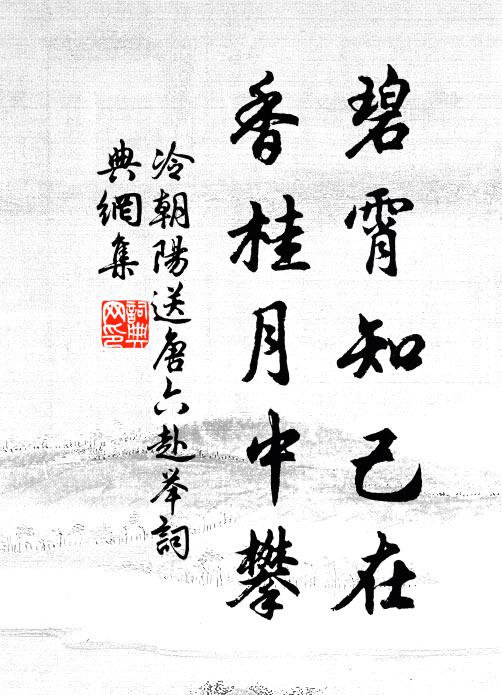 碧霄知己在
香桂月中攀
冷朝陽送唐六赴举詞
典網集
詞典网印